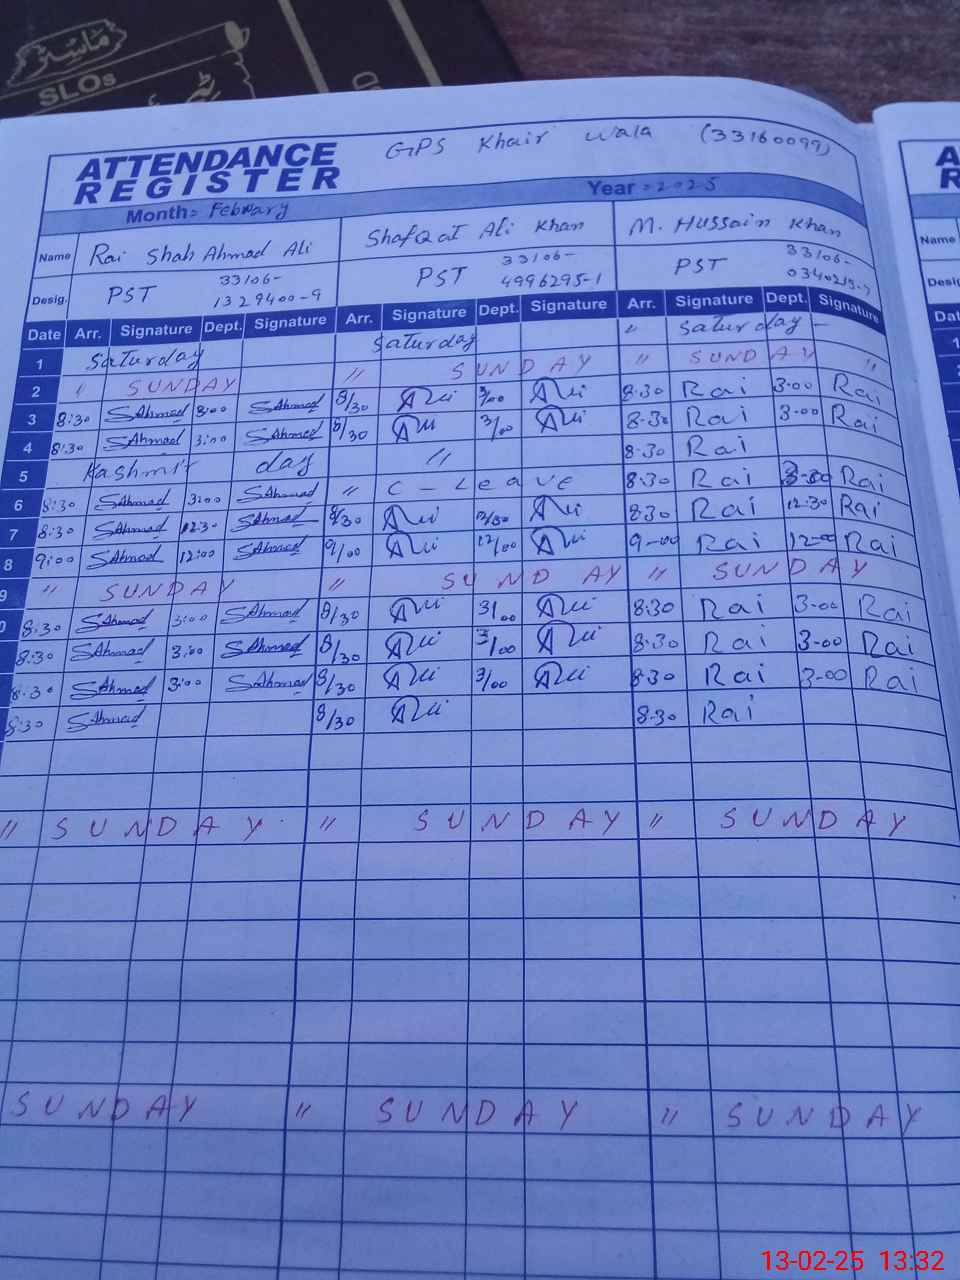 SLOs
ATTENDANCE
REGISTER
GPS Khair Wala (33160099)
Month= February Year = 2025
Name Rai Shah Ahmad Ali Shafqat Ali Khan M. Hussain Khan
Name
Desig. PST 33106-1329400-9 PST 33106-4996295-1 PST 33106-
Date Arr. Signature Dept. Signature Arr. Signature Dept. Signature Arr. Signature Dept. Signature
1 Saturday Saturday " Saturday -
2 " SUNDAY " SUNDAY " SUNDAY "
3 8:30 SAhmad 3:00 SAhmad 8/30 Ali 3/00 Ali 8:30 Rai 3-00 Rai
4 8:30 SAhmad 3:00 SAhmad 8/30 Ali 3/00 Ali 8-30 Rai 3-00 Rai
5 Kashmir day " 8:30 Rai
6 8:30 SAhmad 3:00 SAhmad " C-Leave 8:30 Rai Rai
7 8:30 SAhmad 12:30 SAhmad 8/30 Ali 12/30 Ali 8:30 Rai 12:30 Rai
8 9:00 SAhmad 12:00 SAhmad 9/00 Ali 12/00 Ali 9-00 Rai 12-00 Rai
9 " SUNDAY " SUNDAY " SUNDAY
0 8:30 SAhmad 3:00 SAhmad 8/30 Ali 3/00 Ali 8:30 Rai 3-00 Rai
8:30 SAhmad 3:00 SAhmad 8/30 Ali 3/00 Ali 8:30 Rai 3-00 Rai
8:30 SAhmad 3:00 SAhmad 8/30 Ali 3/00 Ali 8:30 Rai 3-00 Rai
8:30 SAhmad 8/30 Ali 8-30 Rai
" SUNDAY " SUNDAY " SUNDAY
SUNDAY " SUNDAY " SUNDAY
13-02-25 13:32